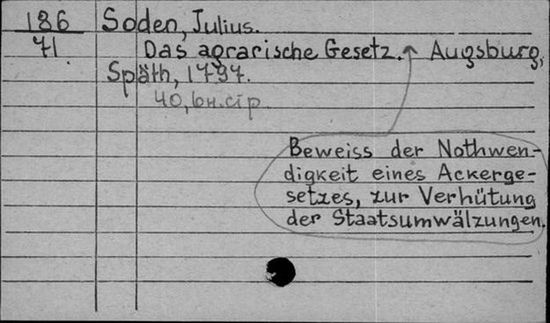 186 Soden, Julius.
71. Das agrarische Gesetz. Augsburg,
Späth, 1797.
40, 6н. стр.
Beweiss der Nothwen-
digkeit eines Ackerge-
setzes, zur Verhütung
der Staatsumwälzungen.